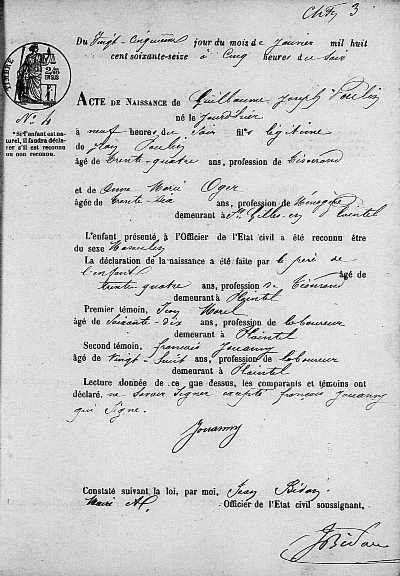 3
Du Vingt-Cinquième jour du mois de Janvier mil huit
cent soixante-seize à Cinq heures du Soir
TIMBRE
N° 4
*Si l'enfant est na-
turel, il faudra décla-
rer s'il est reconnu
ou non reconnu.
ACTE DE NAISSANCE de Guillaume Joseph Poulin
né le jour d'hier
à neuf heures du Soir fils légitime
de Jean Poulin
âgé de trente-quatre ans, profession de tisserand
et de Anne Marie Oger
âgée de trente-six ans, profession de Ménagère
demeurant à Plaintel
L'enfant présenté à l'Officier de l'Etat civil a été reconnu être
du sexe Masculin
La déclaration de la naissance a été faite par le père de
l'enfant âgé de
trente quatre ans, profession de tisserand
demeurant à Plaintel
Premier témoin, Jean Morel
âgé de Soixante-dix ans, profession de laboureur
demeurant à Plaintel
Second témoin, françois Jouanny
âgé de Vingt-huit ans, profession de laboureur
demeurant à Plaintel
Lecture donnée de ce que dessus, les comparants et témoins ont
déclaré ne savoir signer excepté françois Jouanny
qui Signe.
Jouanny
Constaté suivant la loi, par moi, Jean Bidan
Maire Officier de l'Etat civil soussigné,
JBidan